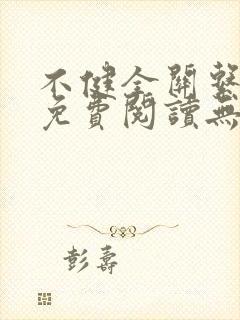 不健全關繫
免費閱讀無
彭壽